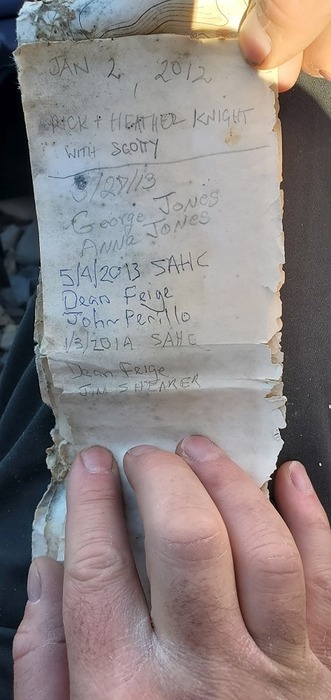 JAN 2, 2012
RICK + HEATHER KNIGHT
WITH SCOTTY
3/28/13
George JONES
ANNA JONES
5/4/2013 SAHC
Dean Feige
John Perillo
1/3/2014 SAHC
Dean Feige
JIM SHEARER